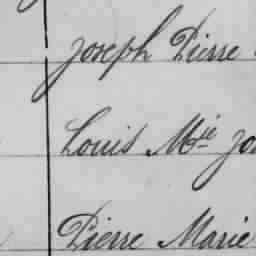 Joseph Pierre
Louis Mie Jo
Pierre Marie